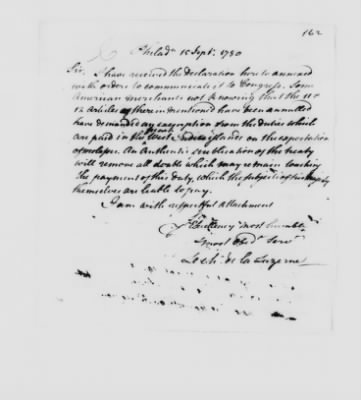 162
Philada 15 Sept. 1780
Sir, I have received the Declaration hereto annexed
with orders to communicate it to Congress. Some
American merchants not knowing that the 11 &
12 Articles therein mentioned have been annulled
have demanded an exemption from the duties which
are paid in the french West Indies Islands on the exportation
of molasses. An Authentic publication of the treaty
will remove all doubt which may remain touching
the payment of this duty, which the subjects of his majesty
themselves are liable to pay.
I am with respectful attachment
Sir
yr Excellency's most humble
& most Obedt Servt
Le ch. de la Luzerne